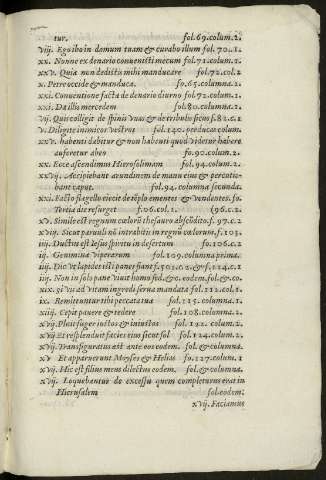 tur. fol.69.colum.2.
viij. Ego ibo in domum tuam & curabo illum fol.70.c.1.
xx. Nonne ex denario conuenisti mecum fol.71.colum.2.
xxv. Quia non dedistis mihi manducare fol.72.col.1
x. Petre occide & manduca. fo.65.columna.2.
xxi. Conuentione facta de denario diurno fol.72.colum.1.
xxi. Da illis mercedem fol.80.columna.2.
vij. Qui colligit de spinis vuas & de tribulis ficus f.82.c.1
v. Diligite inimicos vestros fol.140. per duas colum.
xxv. habenti dabitur & non habenti quod videtur habere
auferetur ab eo fo.90.colum.2.
xx. Ecce ascendimus Hierosolimam fol.94.colum.2.
xxvij. Accipiebant arundinem de manu eius & percutie-
bant caput. fol.94.columna secunda.
xxi. Facto flagello eiecit de templo ementes & vendentes. fo.
Tertia die resurget f.96.col.1. (96.c.2
x. Simile est regnum cælorū thesauro abscōdito. f.97.c.2
xviij. Sicut paruuli nō intrabitis in regnū cælorum. f.103.
iiij. Ductus est Iesus spiritu in desertum fo.106.c.2
iij. Genimina viperarum fol.109.columna prima.
iiij. Dic vt lapides isti panes fiant f.502.c.2 & f.114.c.1
iiij. Non in solo pane viuit homo fol.& c.eodem. fol.& co.
xix. Si vis ad vitam ingredi serua mandata fol.112.col.1.
ix. Remittuntur tibi peccata tua fol.115.columna.1.
xiiij. Cepit pauere & tedere fol.108.columna.2.
v. Pluit super iustos & iniustos fol.192. colum.2.
xvij. Et resplenduit facies eius sicut sol fol.124.colum.2.
xvij. Transfiguratus est ante eos eodem. fol.& columna.
xvij Et apparuerunt Moyses & Helias fo.127.colum.1
xvij. Hic est filius meus dilectus eodem. fol.& columna.
xvij. Loquebantur de excessu quem completurus erat in
Hierusalem fol.eodem.
xvij. Faciamus